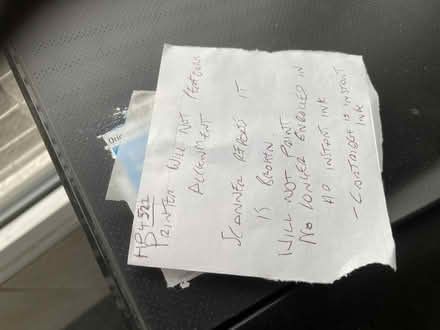 HP4522
PRINTER WILL NOT PERFORM
ALIGNMENT
SCANNER REPORTS IT
IS BROKEN
WILL NOT PRINT
NO LONGER ENROLLED IN
HP INSTANT INK
- CARTRIDGE IS INSTANT
INK